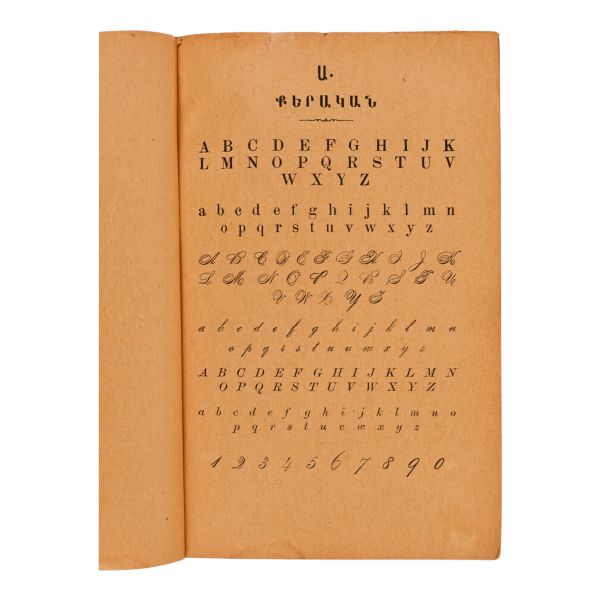 Ա.
ՔԵՐԱԿԱՆ
A B C D E F G H I J K
L M N O P Q R S T U V
W X Y Z
a b c d e f g h i j k l m n
o p q r s t u v w x y z
A B C D E F G H I J K
L M N O P Q R S T U
V W X Y Z
a b c d e f g h i j k l m n
o p q r s t u v w x y z
A B C D E F G H I J K L M N
O P Q R S T U V W X Y Z
a b c d e f g h i j k l m n o
p q r s t u v w x y z
1 2 3 4 5 6 7 8 9 0